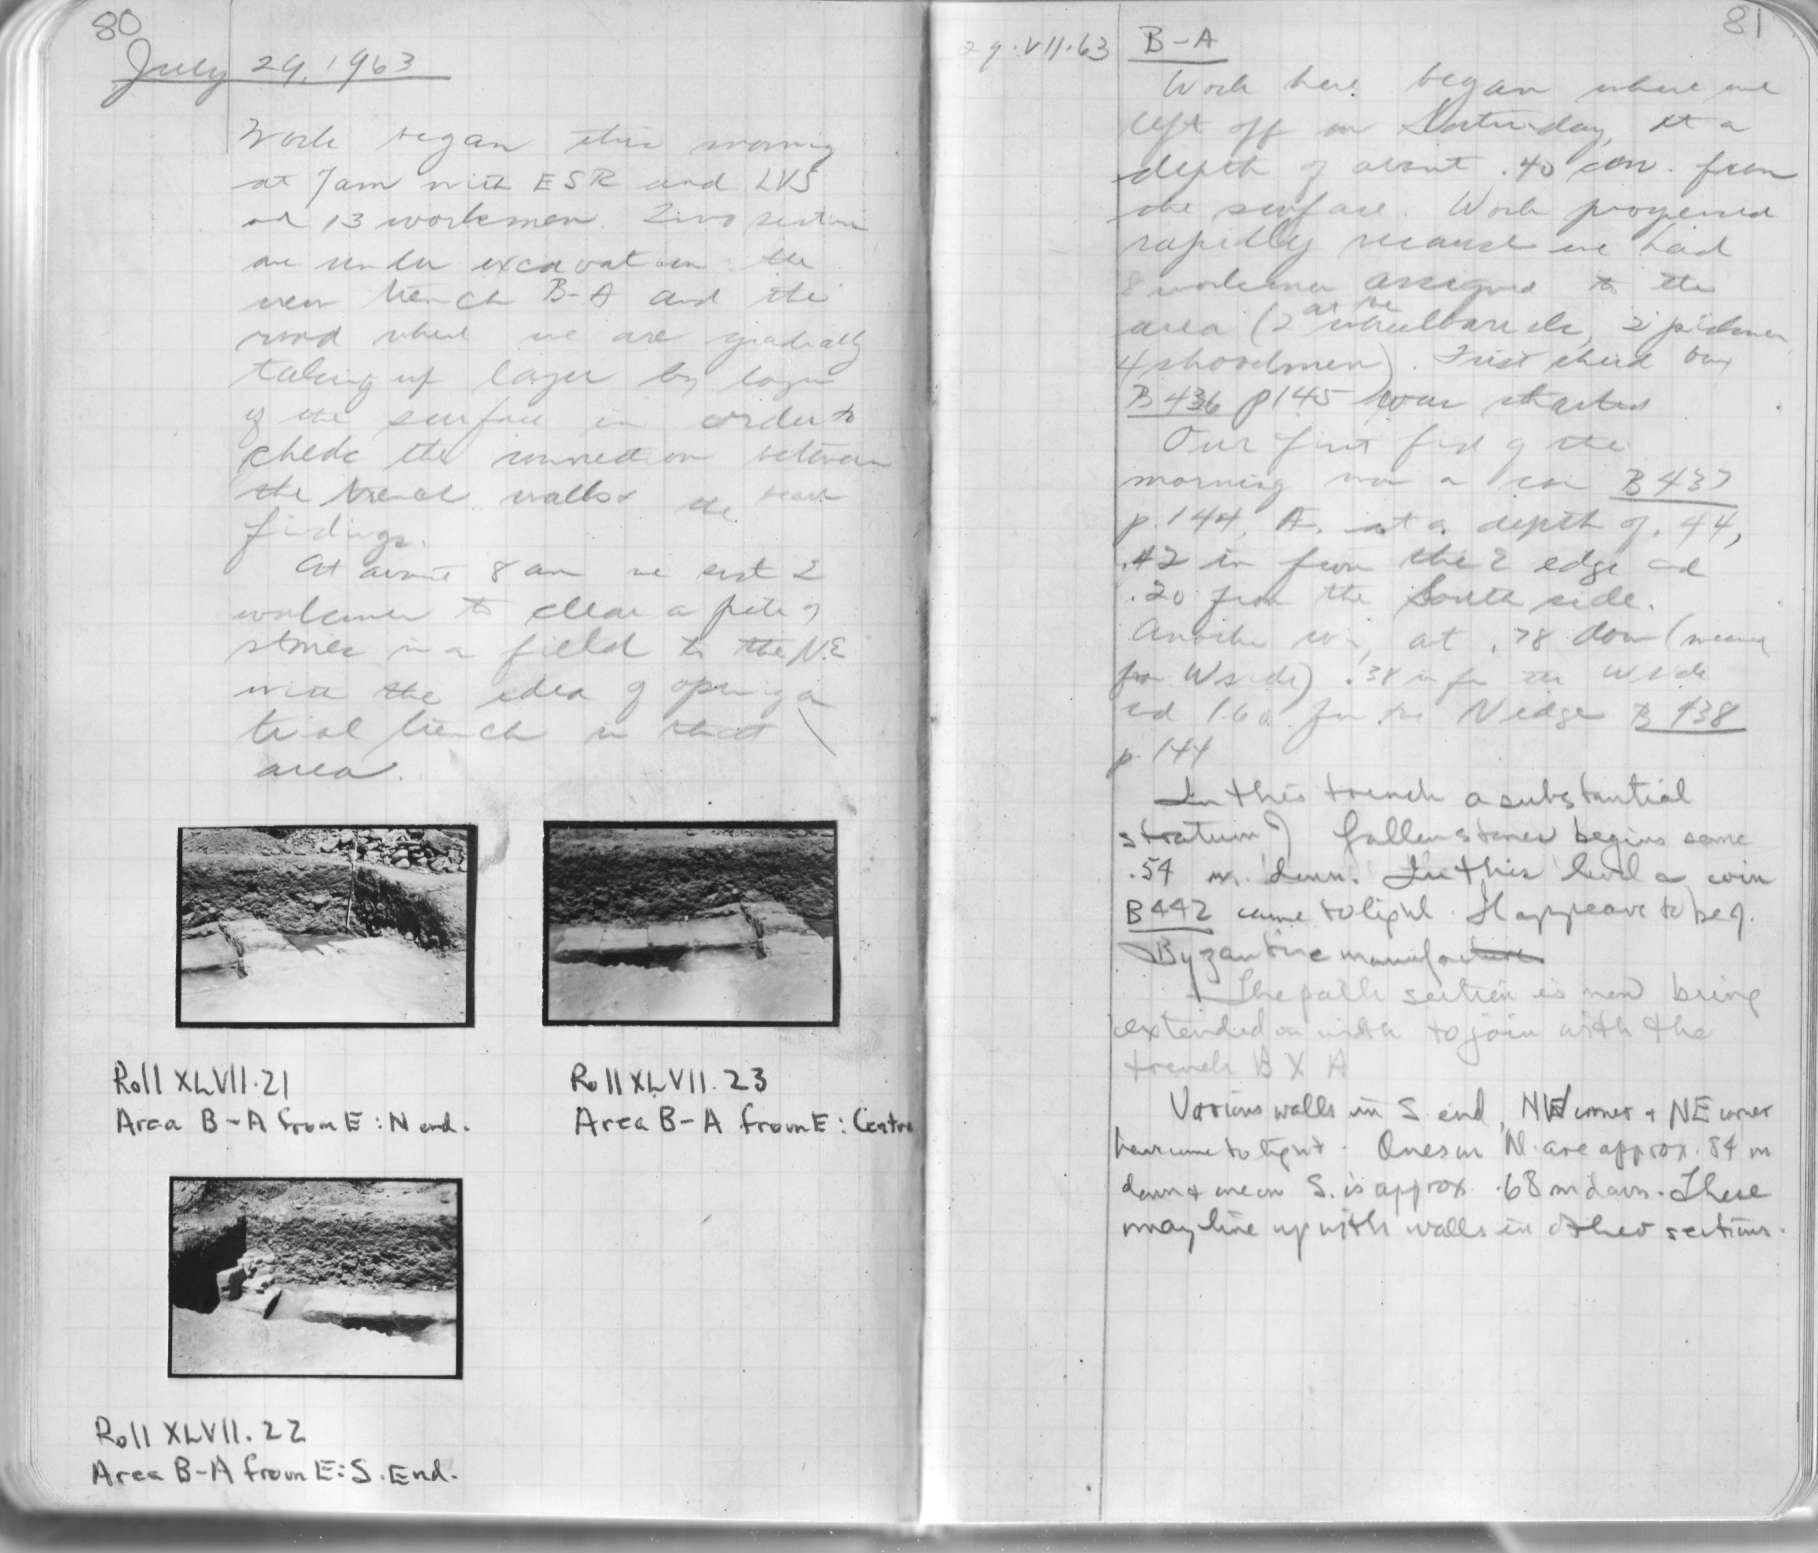 80
July 29, 1963
Work began this morning
at 7am with ESR and LVS
and 13 workmen. Two sections
are under excavation the
new trench B-A and the
road where we are gradually
taking up layer by layer
of the surface in order to
check the connection between
the trench walls & the
findings.
At about 8 am we sent 2
workmen to clear a pile of
stones in a field to the NE
with the idea of opening a
trial trench in that
area.
Roll XLVII.21
Area B-A from E: N end.
Roll XLVII.23
Area B-A from E: Centre
Roll XLVII.22
Area B-A from E: S. End.
81
29.VII.63
B-A
Work here began where we
left off on Saturday, at a
depth of about .40 cm. from
the surface. Work progressed
rapidly because we had
8 workmen assigned to the
area (2 at the wheelbarrows, 2 pickmen
4 shovelmen). First sherd box
B436 p145 was started
Our first find of the
morning was a coin B437
p.144, A. at a depth of .44,
.42 in from the E edge and
.20 from the South side.
Another coin, at .78 down (measured
from W side) .38 in from the W side
and 1.60 from the N edge B438
p.144
In this trench a substantial
stratum of fallen stones begins some
.54 m. down. In this level a coin
B442 came to light. It appears to be of
Byzantine manufacture
The path section is now being
extended in width to join with the
trench B X A
Various walls in S. end, NW corner & NE corner
have come to light. Ones in N. are approx. .84 m
down & one on S. is approx. .68 m down. These
may line up with walls in other sections.